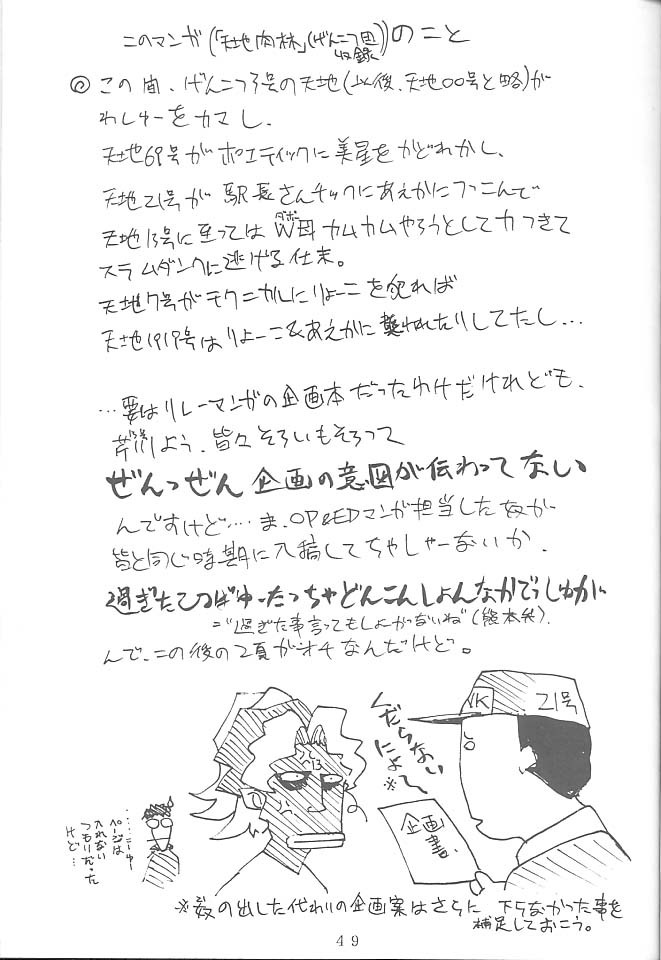 このマンガ(「天地肉林」(げんこつ団収録))のこと
◎この間、げんこつ3号の天地(以後、天地00号と略)が
わしゅーをカマし、
天地69号がポエティックに美星をかどわかし、
天地21号が駅長さんチックにあえかにつっこんで
天地13号に至ってはW母カムカムやろうとして力つきて
スラムダンクに逃げる仕末。
天地7号がテクニカルにりょーこを犯れば
天地1919号はりょーこ&あえかに襲われたりしてたし…
…要はリレーマンガの企画本だったわけだけれども、
よう、皆々そろいもそろって
ぜんっぜん企画の意図が伝わってない
んですけど…ま、OP&EDマンガ担当した奴が
皆と同じ時期に入稿してちゃしゃーないか、
過ぎたこつばゆーたっちゃどんこんしょんなかでっしゅかに
="過ぎた事言ってもしょうがないね"(熊本弁)
んで、この後の2頁がオチなんだけど。
くだらない
によ〜
※
VK
21号
13
企画書
ページは
入れない
つもりだった
けど…
※奴の出した代わりの企画案はさらに下らなかった事を
補足しておこう。
49